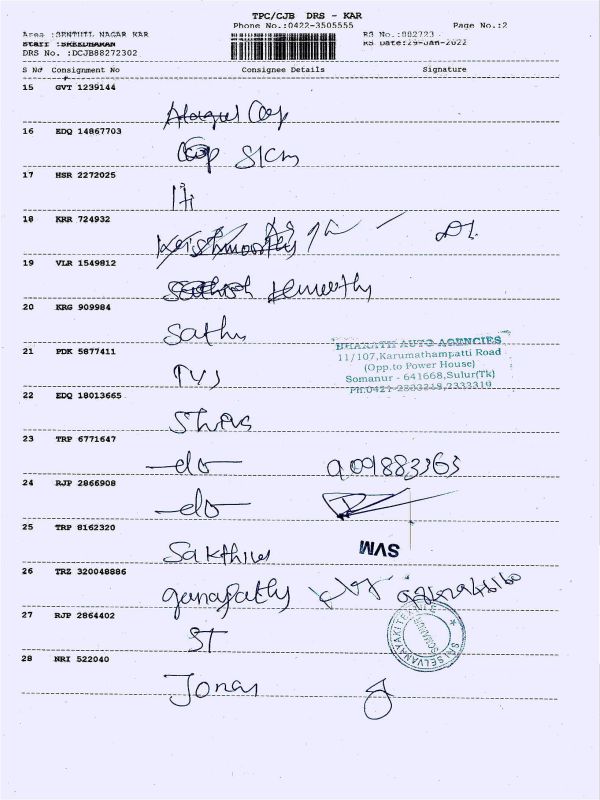 TPC/CJB DRS - KAR
Phone No.:0422-3505555
Page No.:2
Area :SENTHIL NAGAR KAR
RS No.:882723
Staff :SREEDHARAN
RS Date:29-Jan-2022
DRS No. :DCJB88272302
S No Consignment No Consignee Details Signature
15 GVT 1239144
Cop
16 EDQ 14867703
Cop Slcm
17 HSR 2272025
18 KRR 724932
Krishmoorthy
19 VLR 1549812
20 KRG 909984
Sathy
21 PDK 5877411
TVS
BHARATH AUTO AGENCIES
11/107,Karumathampatti Road
(Opp.to Power House)
Somanur - 641668,Sulur(Tk)
Ph:0421-2333319
22 EDQ 18013665
Shivs
23 TRP 6771647
-do- 9091883363
24 RJP 2866908
-do-
25 TRP 8162320
Sakthivel
SVM
26 TRZ 320048886
ganapathy
27 RJP 2864402
ST
SRI SELVANAYAKI TEXTILE
SOMANUR
28 NRI 522040
Jonas